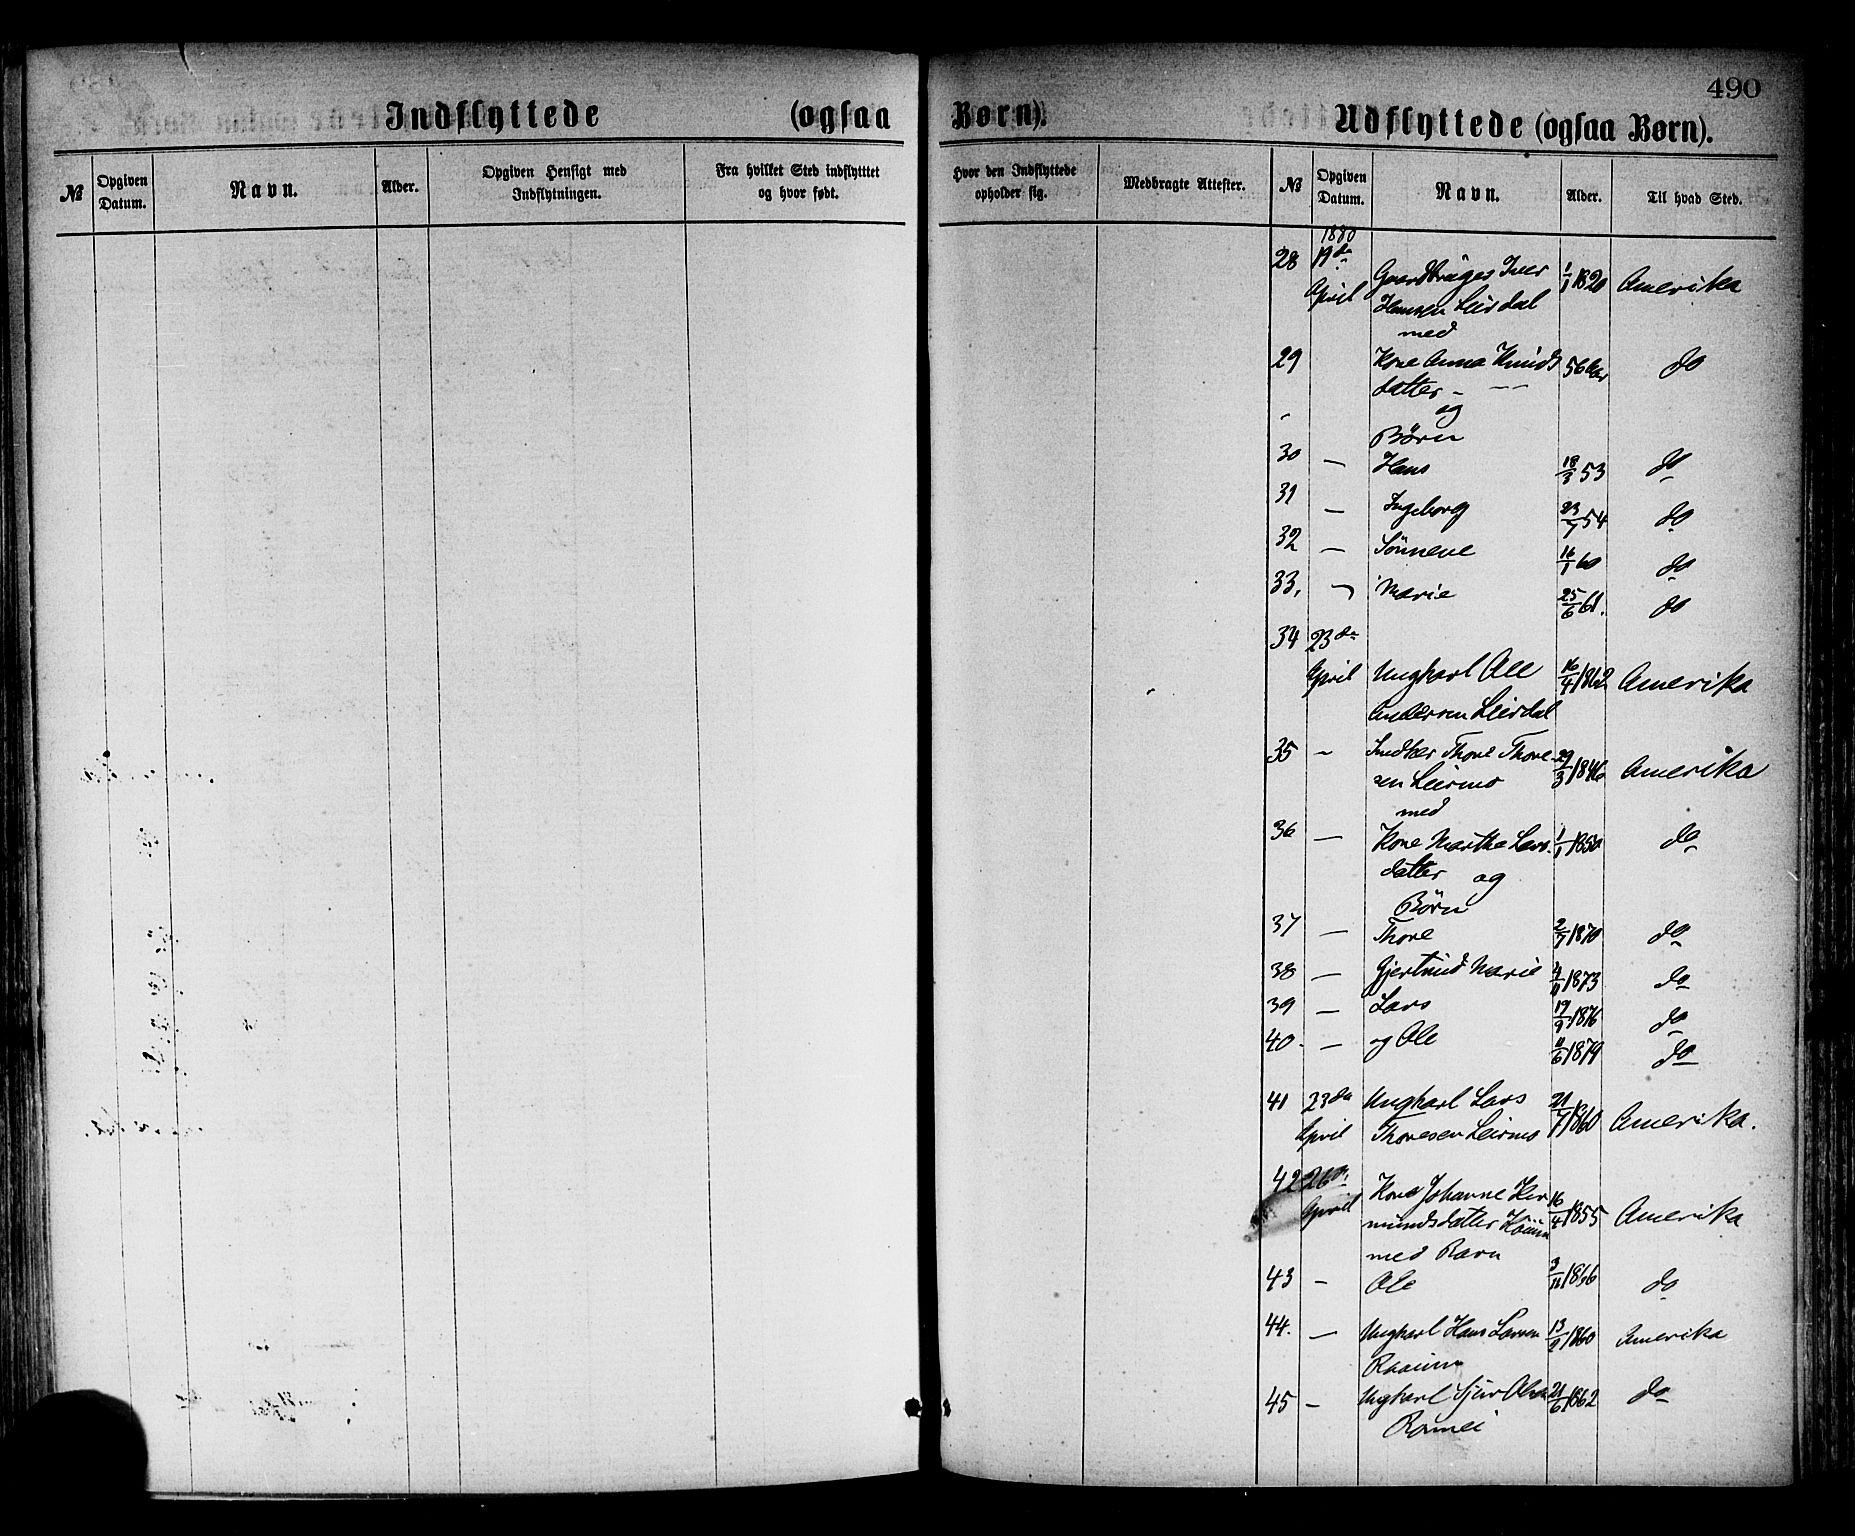 490
Indflyttede (ogsaa Børn).
Udflyttede (ogsaa Børn).
№ Opgiven Datum. Navn. Alder. Opgiven Hensigt med Indflytningen. Fra hvilket Sted indflyttet og hvor født. Hvor den Indflyttede opholder sig. Medbragte Attester. № Opgiven Datum. Navn. Alder. Til hvad Sted.
1880
28 19de April Gaardbruger Iver 1/1 1820 Amerika
Hansen Leirdal
med
29 Kone Anna Knuds 56 Aar do
datter -
og
Børn
30 — Hans 18/3 53 do
31 — Ingeborg 23/7 54 do
32 — Sönneve 16/1 60 do
33. — Marie 25/6 61. do
34 23de
April Ungkarl Ole 16/4 1862 Amerika
Andersen Leirdal
35 - Thore Thore 29/3 1846 Amerika
sen Leirmo
med
36 — Kone Martha Lars- 1/1 1850 do
datter og
Börn
37 — Thore 2/7 1870 do
38 — Gjertrud Marie 4/11 1873 do
39 — Lars 19/9 1876 do
40. — og Ole 11/6 1879 do
41 23de Ungkarl Lars 21/7 1860 Amerika.
April Thoresen Leirmo
42 26de Kone Johanne Her 16/4 1855 Amerika
April mundsdatter
med Barn
43 - Ole 3/11 do
44. — Ungkarl Hans Larsen 13/2 1860 Amerika
Raaum
45 — Ungkarl Sjur Olsen 21/6 1862 do